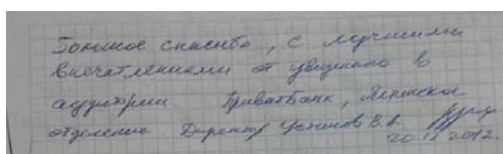 Большое спасибо, с лучшими
впечатлениями от увиденного в
аудитории ПриватБанк,
отделение Директор Устинов В.А.
20.12.2012